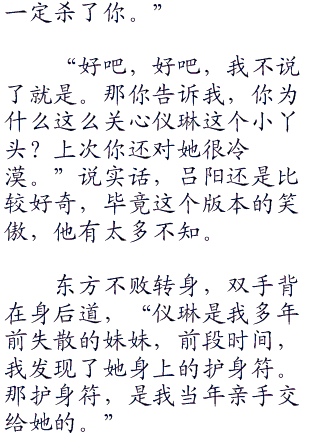 一定杀了你。”
“好吧，好吧，我不说
了就是。那你告诉我，你为
什么这么关心仪琳这个小丫
头？上次你还对她很冷
漠。”说实话，吕阳还是比
较好奇，毕竟这个版本的笑
傲，他有太多不知。
东方不败转身，双手背
在身后道，“仪琳是我多年
前失散的妹妹，前段时间，
我发现了她身上的护身符。
那护身符，是我当年亲手交
给她的。”